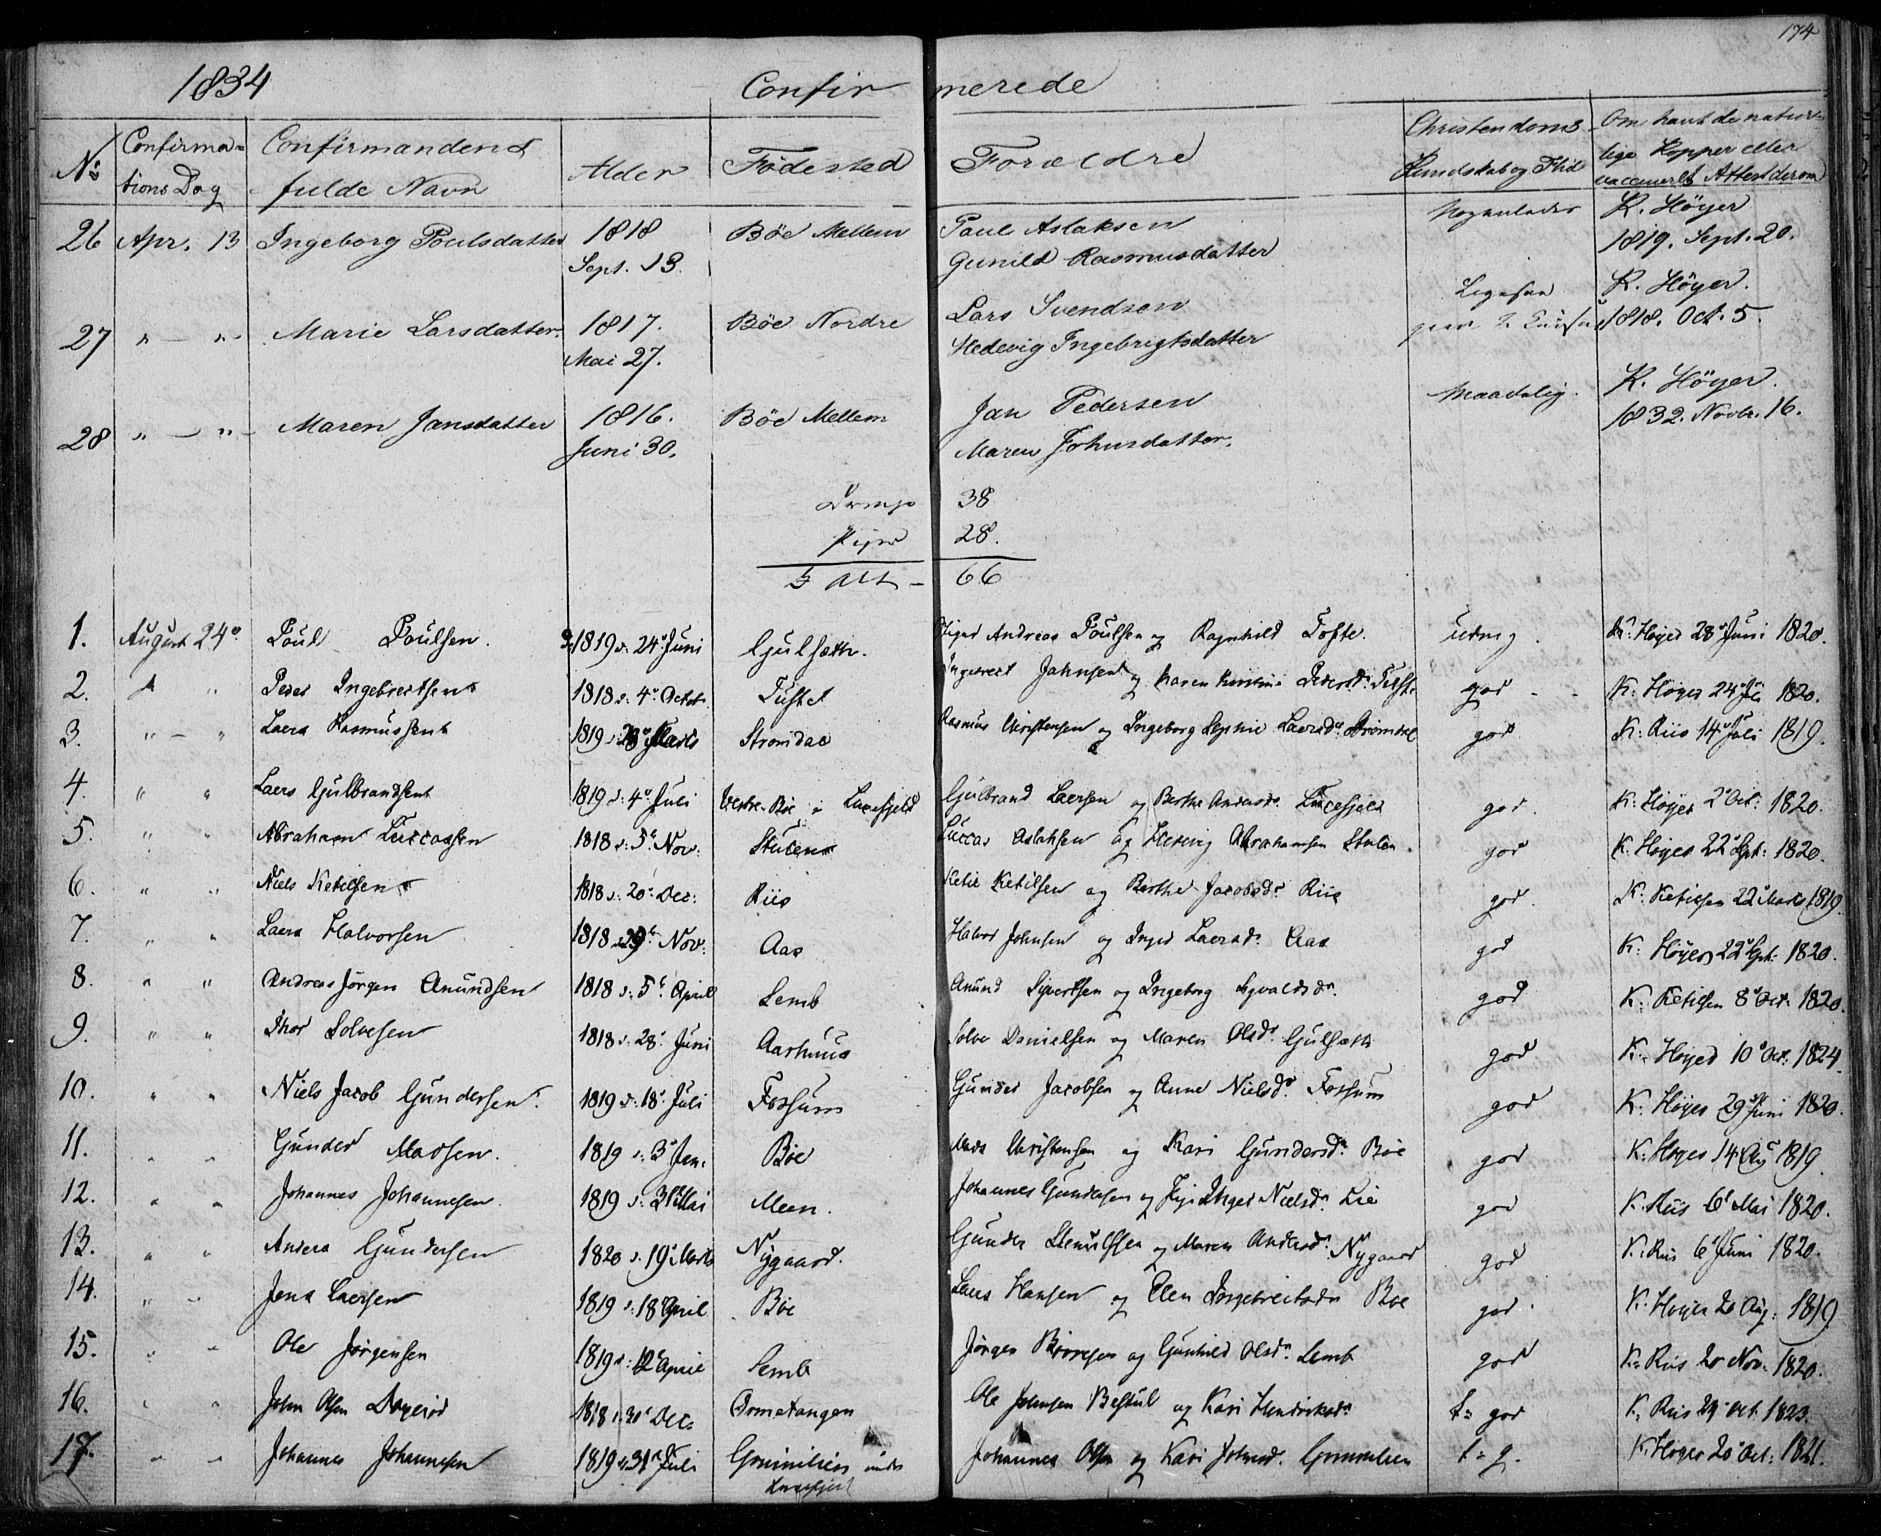 174
1834 Confirmerede
No Confirmations Dag Confirmandens fulde Navn Alder Födested Forældre Christendoms Kundskab og Flid Om havt de naturlige Kopper eller vaccineret Attest derom
26 Apr. 13 Ingeborg Poulsdatter 1818 Sept. 13. Böe Mellem Paul Aslaksen Gunild Rasmusdatter K. Höyer 1819. Sept. 20.
27 " — " Marie Larsdatter. 1817. Mai 27. Böe Nordre Lars Svendsen Hedevig Ingebrigtsdatter K. Höyer. 1818. Oct. 5.
28 " — " Maren Jansdatter 1816. Juni 30. Böe Mellem Jan Pedersen Maren Johnsdatter. Maadelig. K. Höyer. 1832. Novbr. 16.
Drenge 38
Piger 28.
I Alt — 66
1. August 24 Poul Poulsen. 1819 d: 24 Juni Gjulsæth. Andreas Poulsen og Ragnhild Tofte. udm. K: Høyer 28 Juni 1820.
2. " " Peder Ingebrectsen 1818 d: 4 Octob. Tuftet Ingebrect Jahnsen og Karen Kirstine Pedersd: god K: Høyer 24 1820.
3. " — " Laers Rasmussen 1819 d: Marts Stromdal Rasmus Christensen og Ingeborg Sophie Laersdr Strømdal god K: Riis 14 Juli 1819.
4. " " Laers Gjulbrandsen 1819 d: 4 Juli Vestre Böe i Luxefjeld Gjulbrand Laersen og Berthe Andersdr Luxefjeld god. K: Høyer 2 Oct: 1820.
5. " " Abraham Luccassen 1818 d: 5 Nov: Stulen Luccas Aslaksen og Hedevig Abrahamsen Stulen. god K. Høyer 22 Spt: 1820.
6. " " Niels Ketilsen 1818 d: 20 Dec: Riis Ketil Ketilsen og Berthe Jacobsdr Riis god. K: Ketilsen 22 Marts 1819.
7. " " Laers Halvorsen 1818 d: 29 Nov: Aas Halvor Johnsen og Inger Laersdr Aas god K: Høyer 22 Spt: 1820.
8. " " Andreas Jørgen Anundsen 1818 d: 5 April Semb Anund Syvertsen og Ingeborg god K: Ketilsen 8 Oct. 1820.
9. " " Thor Solvesen 1818 d: 28 Juni Aarhuus Solve Danielsen og Maren Olsdr Gjulsæth god K: Høyer 10 Oct: 1824.
10. " " Niels Jacob Gundersen. 1819 d: 18 Juli Fossum Gunder Jacobsen og Anne Nielsdr Fossum god K: Høyer 29 Juni 1820.
11. " " Gunder Madsen. 1819 d: 3 Jan. Böe Mads Christensen og Kari Gundersdr Böe god K: Høyer 14 Aug 1819.
12. " " Johannes Johannesen. 1819 d: Mai Meen. Johannes Gundersen og Inger Nielsdr Lie god K: Riis 6 Mai 1820.
13. " " Anders Gundersen 1820 d: 19 Marts Nygaard. Gunder Stenulfsen og Maren Andersdr Nygaard god K: Riis 6 Juni 1820.
14. " " Jens Laersen 1819 d: 18 April Böe Laers Hansen og Elen Ingebrectsdr Böe god. K: Høyer 20 Aug: 1819
15. " " Ole Jørgensen 1819 d: 12 April Semb Jørgen og Gunhild Olsdr Semb god K: Riis 20 Nov: 1820.
16. " " John Olsen 1818 d: 30 Dec: Ormetangen Ole Johnsen Bestul og Kari Hendriksdr t: god K: Riis 29 Oct. 1823.
17. " " Johannes Johannesen 1819 d: 31 Juli Grimilien under Luxefjeld Johannes Olsen og Kari Johnsd. Grimmelien t: g. K: Høyer 20 Oct: 1821.